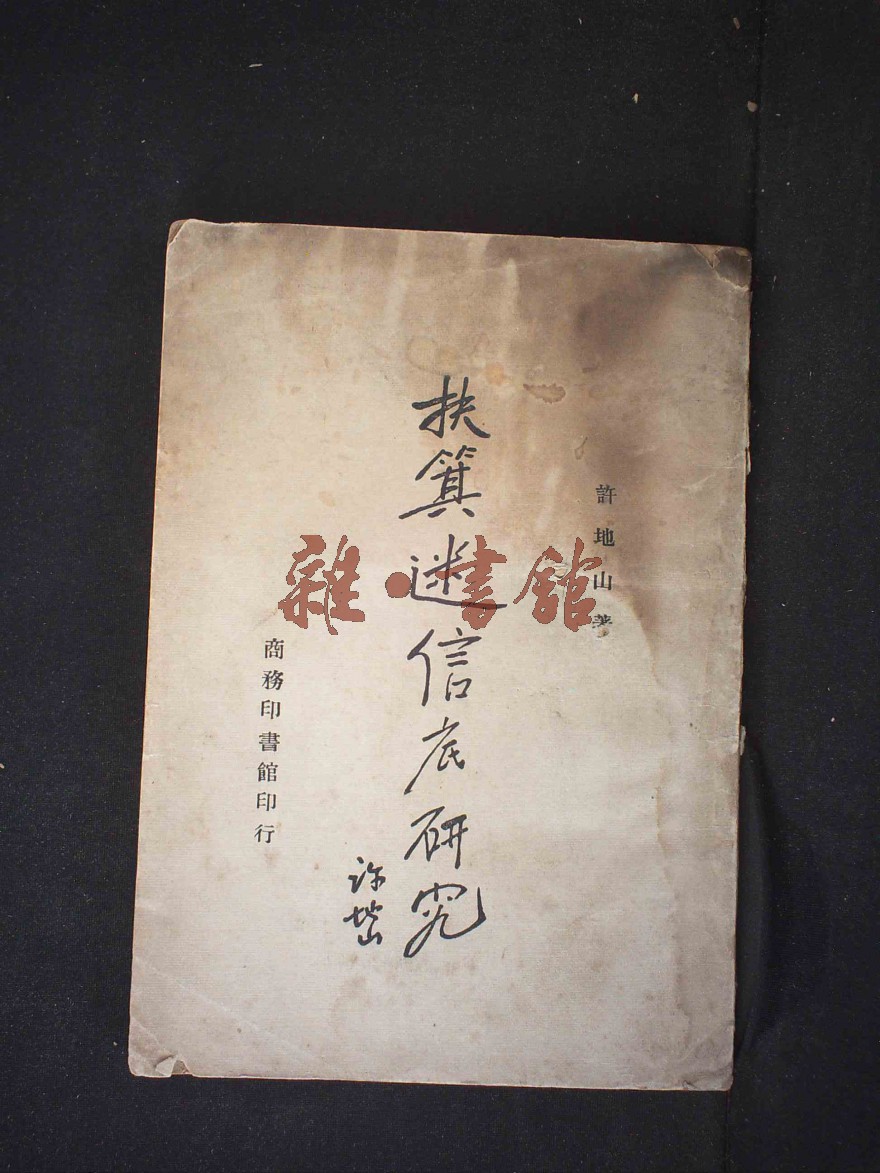 許地山著
扶箕迷信底研究
許地山
商務印書館印行
雜·書館